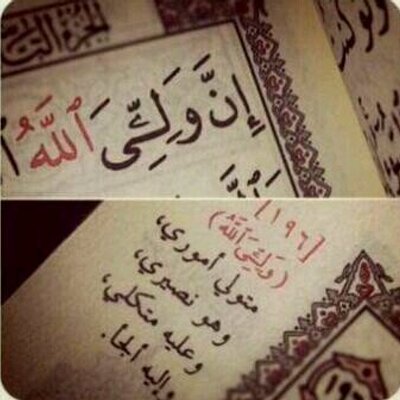 الجزء التا
إِنَّ وَلِـِّۧىَ ٱللَّهُ
[١٩٦]
(وَلِـِّۧىَ ٱللَّهُ)
متولي أموري،
وهو نصيري،
وعليه متكلي،
وإليه ألجأ.